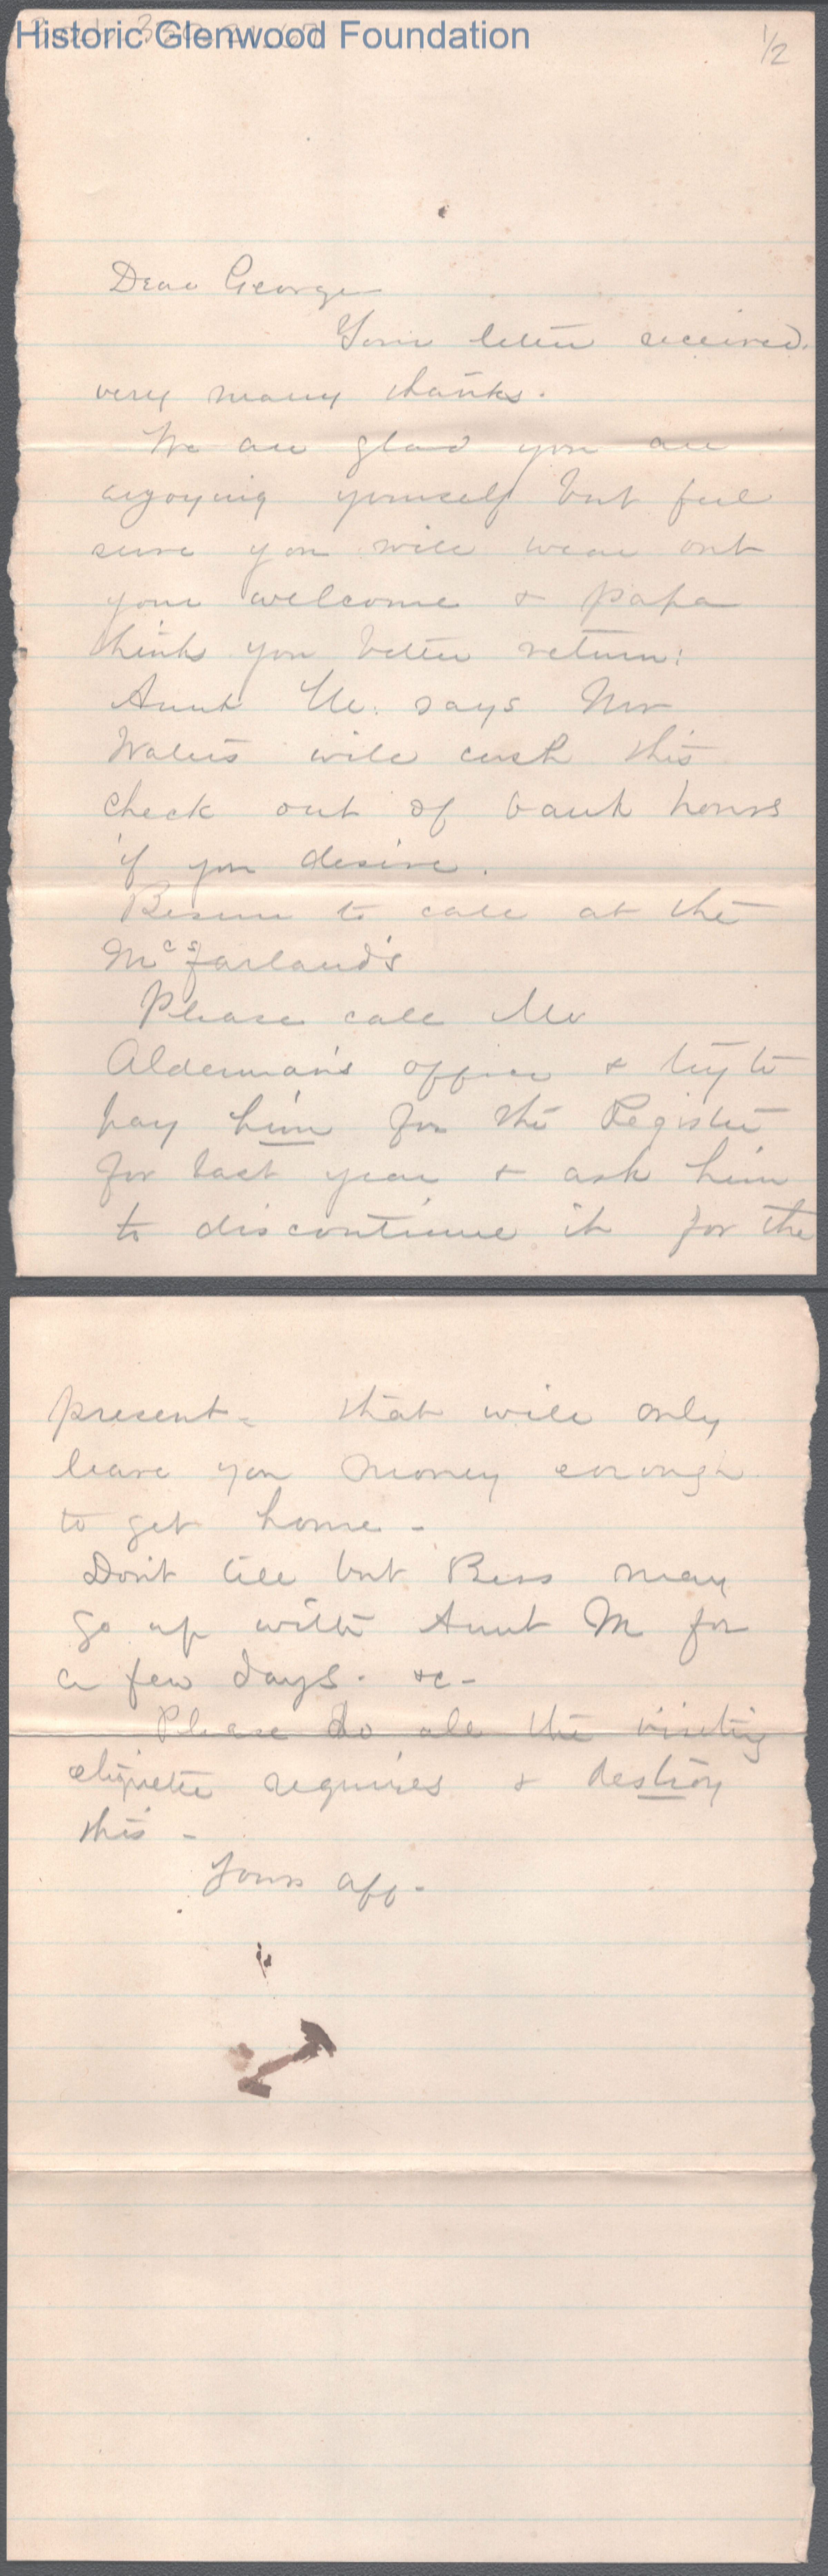 Historic Glenwood Foundation
1/2
Dear George
Your letter received.
very many thanks.
We are glad you are
enjoying yourself but feel
sure you will wear out
your welcome & papa
thinks you better return:
Aunt M. says Mr
Walters will cash this
check out of bank hours
if you desire.
Besure to call at the
McFarland's
Please call Mr
Alderman's office & try to
pay him for the Register
for last year & ask him
to discontinue it for the
present - that will only
leave you money enough
to get home -
Don't tell but Bess may
go up with Aunt M for
a few days. &c -
Please do all the visiting
etiquette requires & destroy
this -
Yours aff -